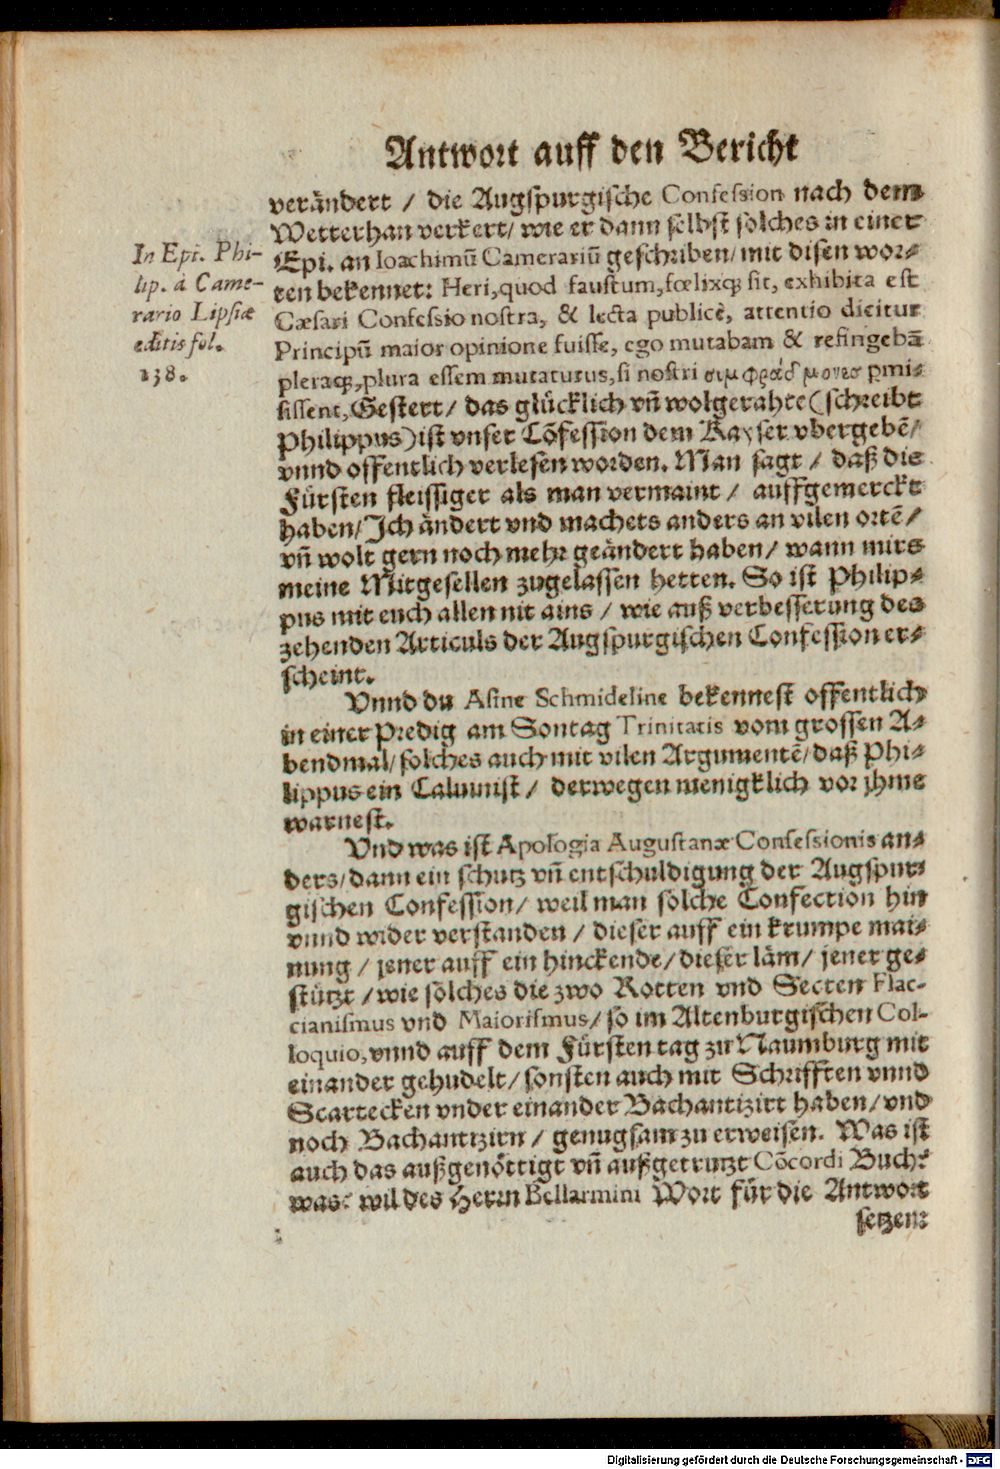 Antwort auff den Bericht
verändert / die Augspurgische Confession nach dem
Wetterhan verkert/ wie er dann selbst solches in einer
Epi. an Ioachimū Camerariū geschriben/ mit disen wor-
ten bekennet: Heri, quod faustum, fœlixq; sit, exhibita est
Cæsari Confessio nostra, & lecta publicè, attentio dicitur
Principū maior opinione fuisse, ego mutabam & refingebā
pleraq;, plura essem mutaturus, si nostri συμφράδμονες pmi-
sissent, Gestert/ das glücklich vñ wolgerahte (schreibt
Philippus) ist vnser Cōfession dem Kayser vbergebē/
vnnd offentlich verlesen worden. Man sagt / daß die
Fürsten fleissiger als man vermaint / auffgemerckt
haben/ Ich ändert vnd machets anders an vilen ortē/
vñ wolt gern noch mehr geändert haben/ wann mirs
meine Mitgesellen zugelassen hetten. So ist Philip-
pus mit euch allen nit ains / wie auß verbesserung des
zehenden Articuls der Augspurgischen Confession er-
scheint.
Vnnd du Asine Schmideline bekennest offentlich
in einer Predig am Sontag Trinitatis vom grossen A-
bendmal/ solches auch mit vilen Argumentē/ daß Phi-
lippus ein Caluinist / derwegen menigklich vor jhme
warnest.
Vnd was ist Apologia Augustanæ Confessionis an-
ders/ dann ein schutz vñ entschuldigung der Augspur-
gischen Confession/ weil man solche Confection hin
vnnd wider verstanden / dieser auff ein krumpe mai-
nung / jener auff ein hinckende/ dieser läm/ jener ge-
stützt / wie solches die zwo Rotten vnd Secten Flac-
cianismus vnd Maiorismus/ so im Altenburgischen Col-
loquio, vnnd auff dem Fürsten tag zu Naumburg mit
einander gehudelt/ sonsten auch mit Schrifften vnnd
Scartecken vnder einander Bachantizirt haben/ vnd
noch Bachantizirn / genugsam zu erweisen. Was ist
auch das außgenöttigt vñ außgetrutzt Cōcordi Buch?
was? wil des Herrn Bellarmini Wort für die Antwort
setzen:
In Epi. Phi-
lip. à Came-
rario Lipsiæ
editis fol.
238.
Digitalisierung gefördert durch die Deutsche Forschungsgemeinschaft - DFG